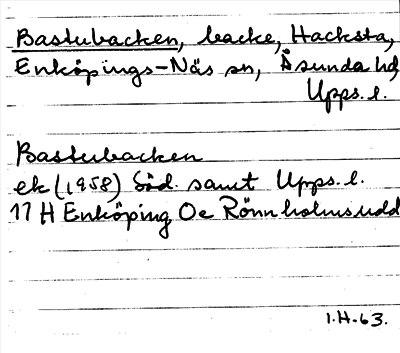 Bastubacken, backe, Hacksta,
Enköpings-Näs sn, Åsunda hd,
Upps. l.
Bastubacken
ek (1958) Söd. samt Upps. l.
11 H Enköping Oe Rönnholmsudd
1.H.63.